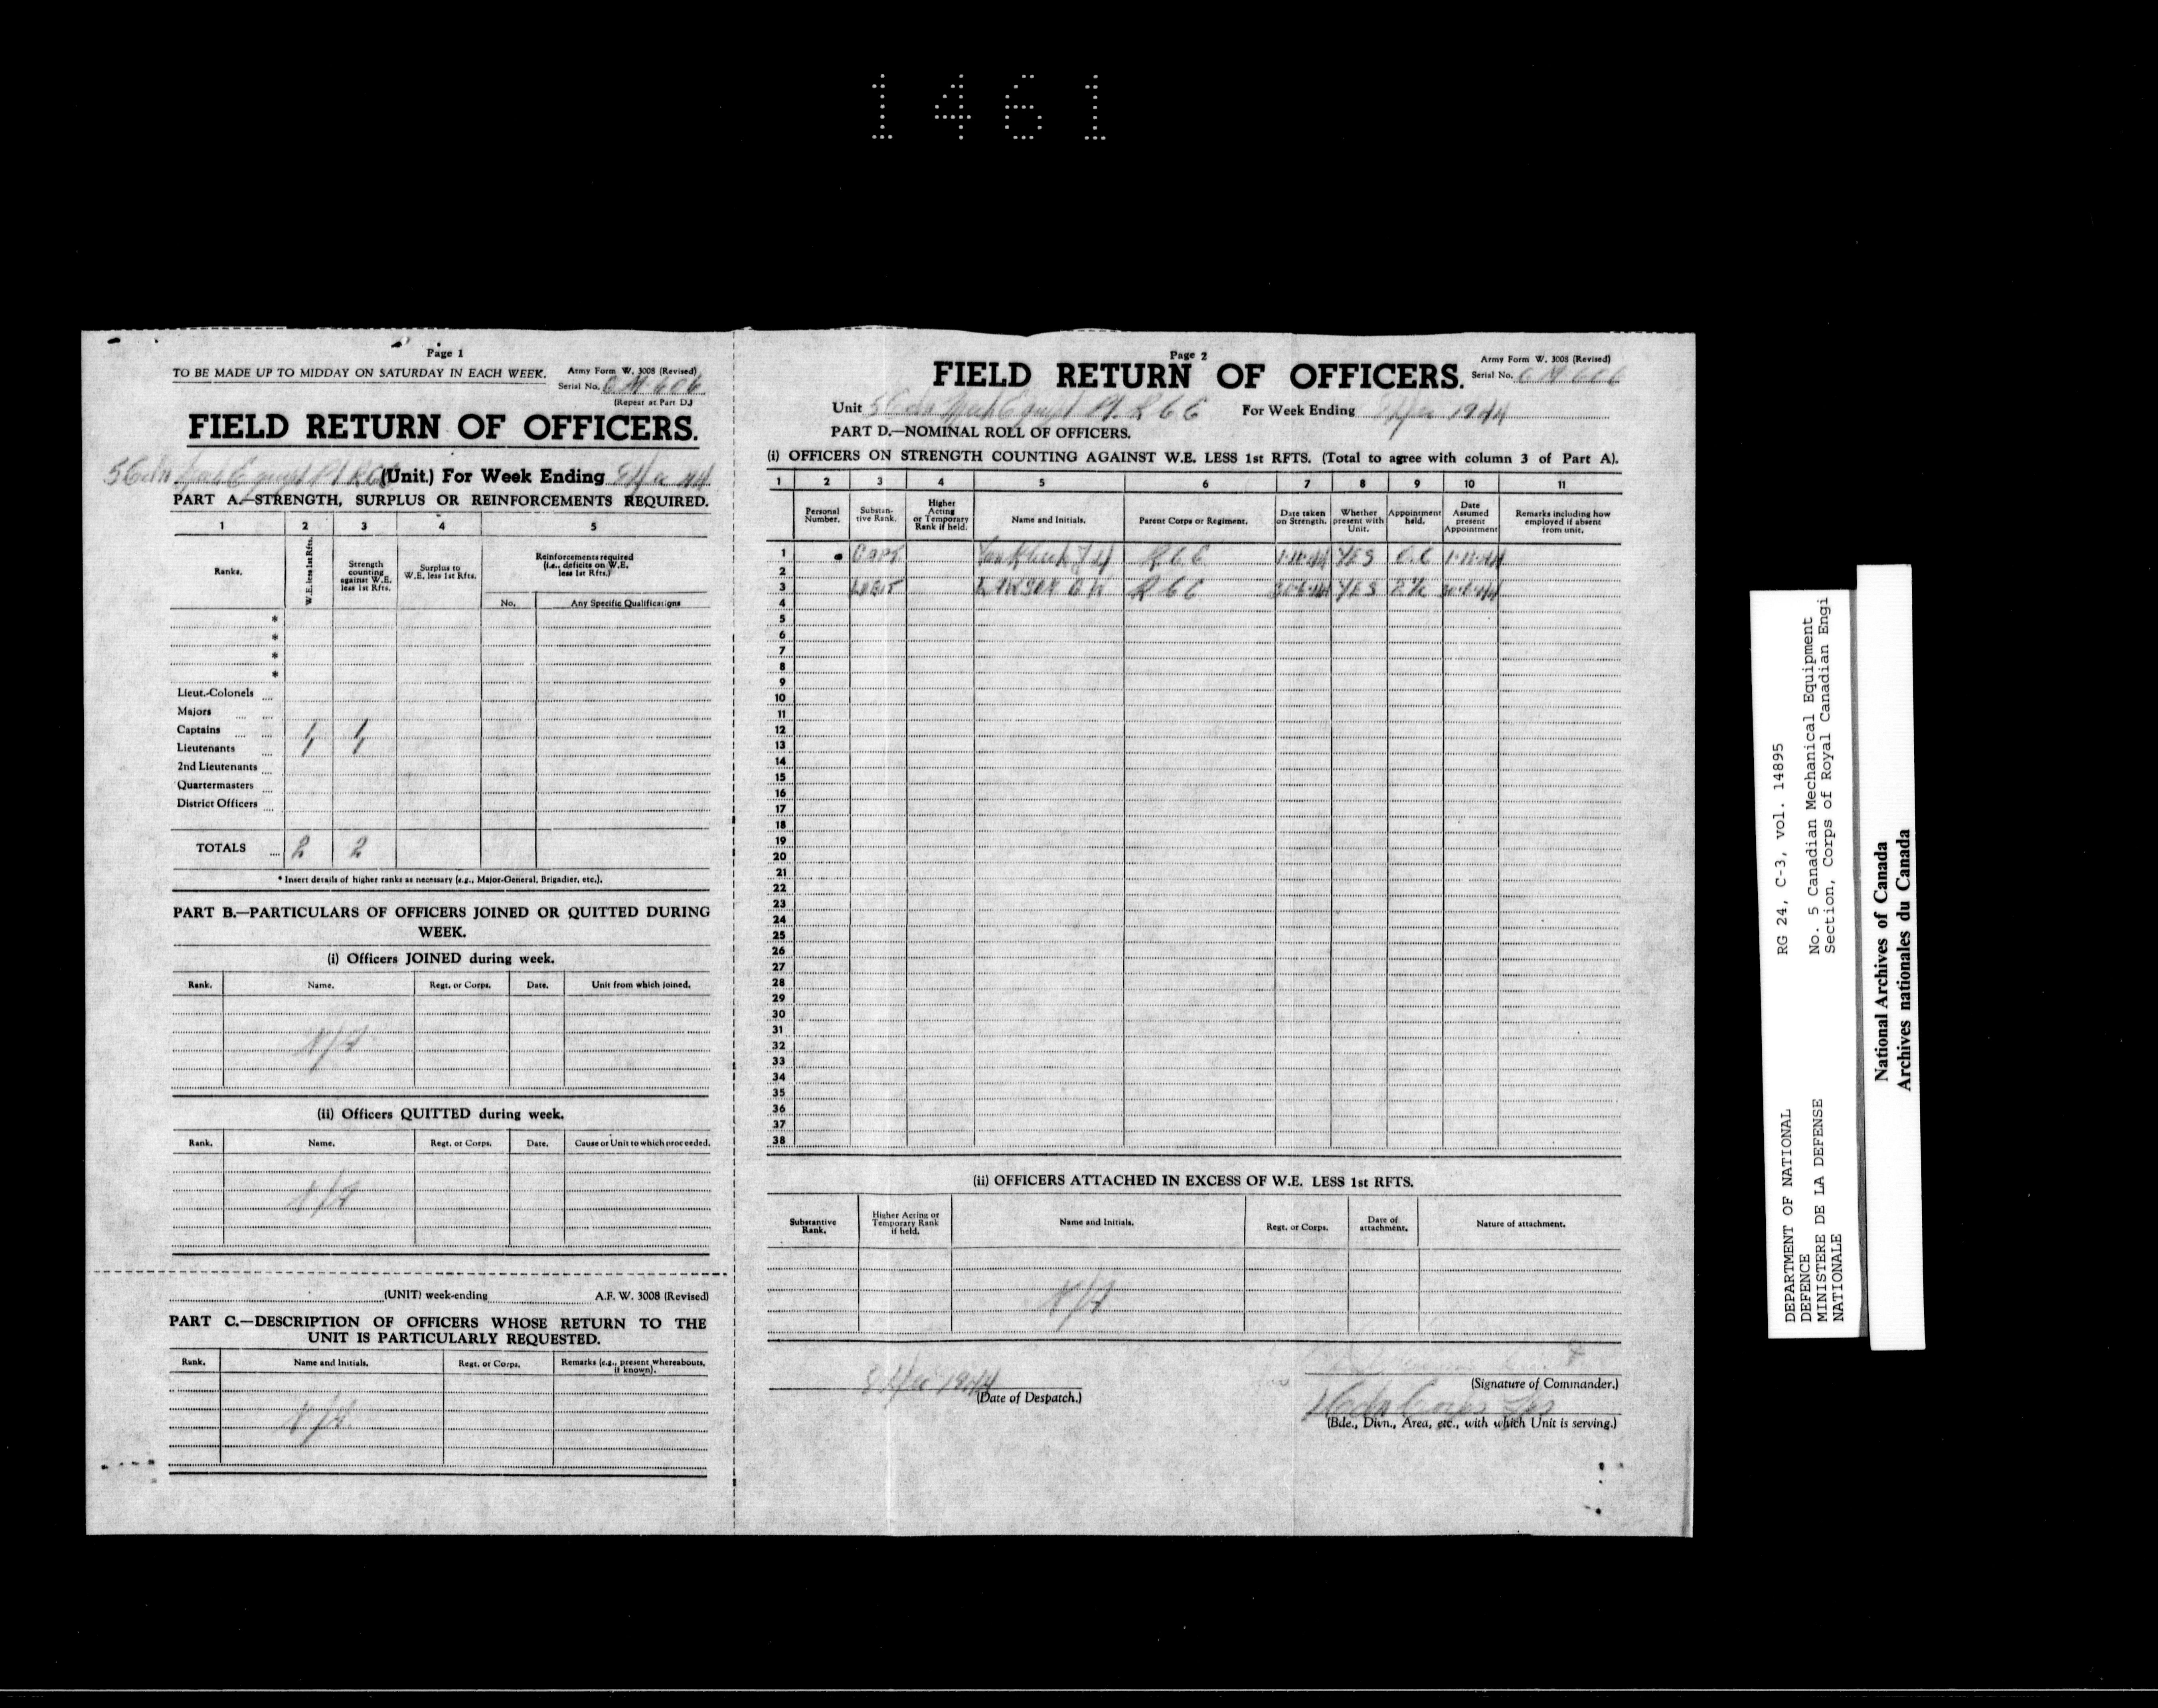 1461
Page 1
TO BE MADE UP TO MIDDAY ON SATURDAY IN EACH WEEK.
Army Form W. 3008 (Revised)
Serial No. CM 606
(Repeat at Part D.)
FIELD RETURN OF OFFICERS.
5 Cdn (Unit.) For Week Ending 44
PART A.—STRENGTH, SURPLUS OR REINFORCEMENTS REQUIRED.
1 2 3 4 5
Ranks.
W.E. less 1st Rfts.
Strength counting against W.E. less 1st Rfts.
Surplus to W.E. less 1st Rfts.
Reinforcements required (i.e., deficits on W.E. less 1st Rfts.)
No. Any Specific Qualifications
*
*
*
*
Lieut.-Colonels ....
Majors .... ....
Captains .... .... 1 1
Lieutenants .... 1 1
2nd Lieutenants ....
Quartermasters ....
District Officers ....
TOTALS .... 2 2
* Insert details of higher ranks as necessary (e.g., Major-General, Brigadier, etc.).
PART B.—PARTICULARS OF OFFICERS JOINED OR QUITTED DURING
WEEK.
(i) Officers JOINED during week.
Rank. Name. Regt. or Corps. Date. Unit from which joined.
(ii) Officers QUITTED during week.
Rank. Name. Regt. or Corps. Date. Cause or Unit to which proceeded.
(UNIT) week-ending A.F. W. 3008 (Revised)
PART C.—DESCRIPTION OF OFFICERS WHOSE RETURN TO THE
UNIT IS PARTICULARLY REQUESTED.
Rank. Name and Initials. Regt. or Corps. Remarks (e.g., present whereabouts, if known).
Page 2
Army Form W. 3008 (Revised)
FIELD RETURN OF OFFICERS.
Serial No.
Unit 5 Cdn For Week Ending 1944
PART D.—NOMINAL ROLL OF OFFICERS.
(i) OFFICERS ON STRENGTH COUNTING AGAINST W.E. LESS 1st RFTS. (Total to agree with column 3 of Part A).
1 2 3 4 5 6 7 8 9 10 11
Personal Number.
Substantive Rank.
Higher Acting or Temporary Rank if held.
Name and Initials.
Parent Corps or Regiment.
Date taken on Strength.
Whether present with Unit.
Appointment held.
Date Assumed present Appointment
Remarks including how employed if absent from unit.
1 CAPT YES O.C
2
3 LIEUT YES
4
5
6
7
8
9
10
11
12
13
14
15
16
17
18
19
20
21
22
23
24
25
26
27
28
29
30
31
32
33
34
35
36
37
38
(ii) OFFICERS ATTACHED IN EXCESS OF W.E. LESS 1st RFTS.
Substantive Rank.
Higher Acting or Temporary Rank if held.
Name and Initials.
Regt. or Corps.
Date of attachment.
Nature of attachment.
1944
(Date of Despatch.)
(Signature of Commander.)
Cdn Corps
(Bde., Divn., Area, etc., with which Unit is serving.)
DEPARTMENT OF NATIONAL
DEFENCE
MINISTERE DE LA DEFENSE
NATIONALE
RG 24, C-3, vol. 14895
No. 5 Canadian Mechanical Equipment
Section, Corps of Royal Canadian Engi
National Archives of Canada
Archives nationales du Canada